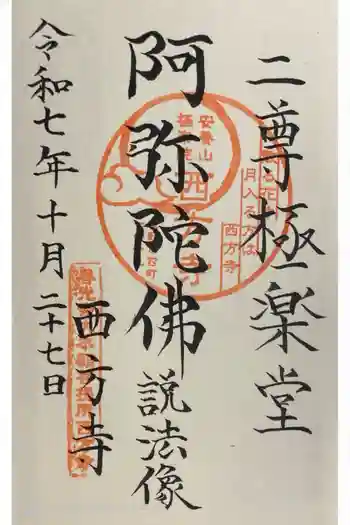 二尊極楽堂
阿弥陀佛
説法像
西方寺
令和七年十月二十七日
西方寺